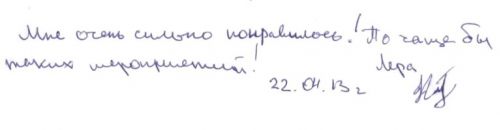 Мне очень сильно понравилось! По чаще бы
таких мероприятий!
Лера
22.04.13 г